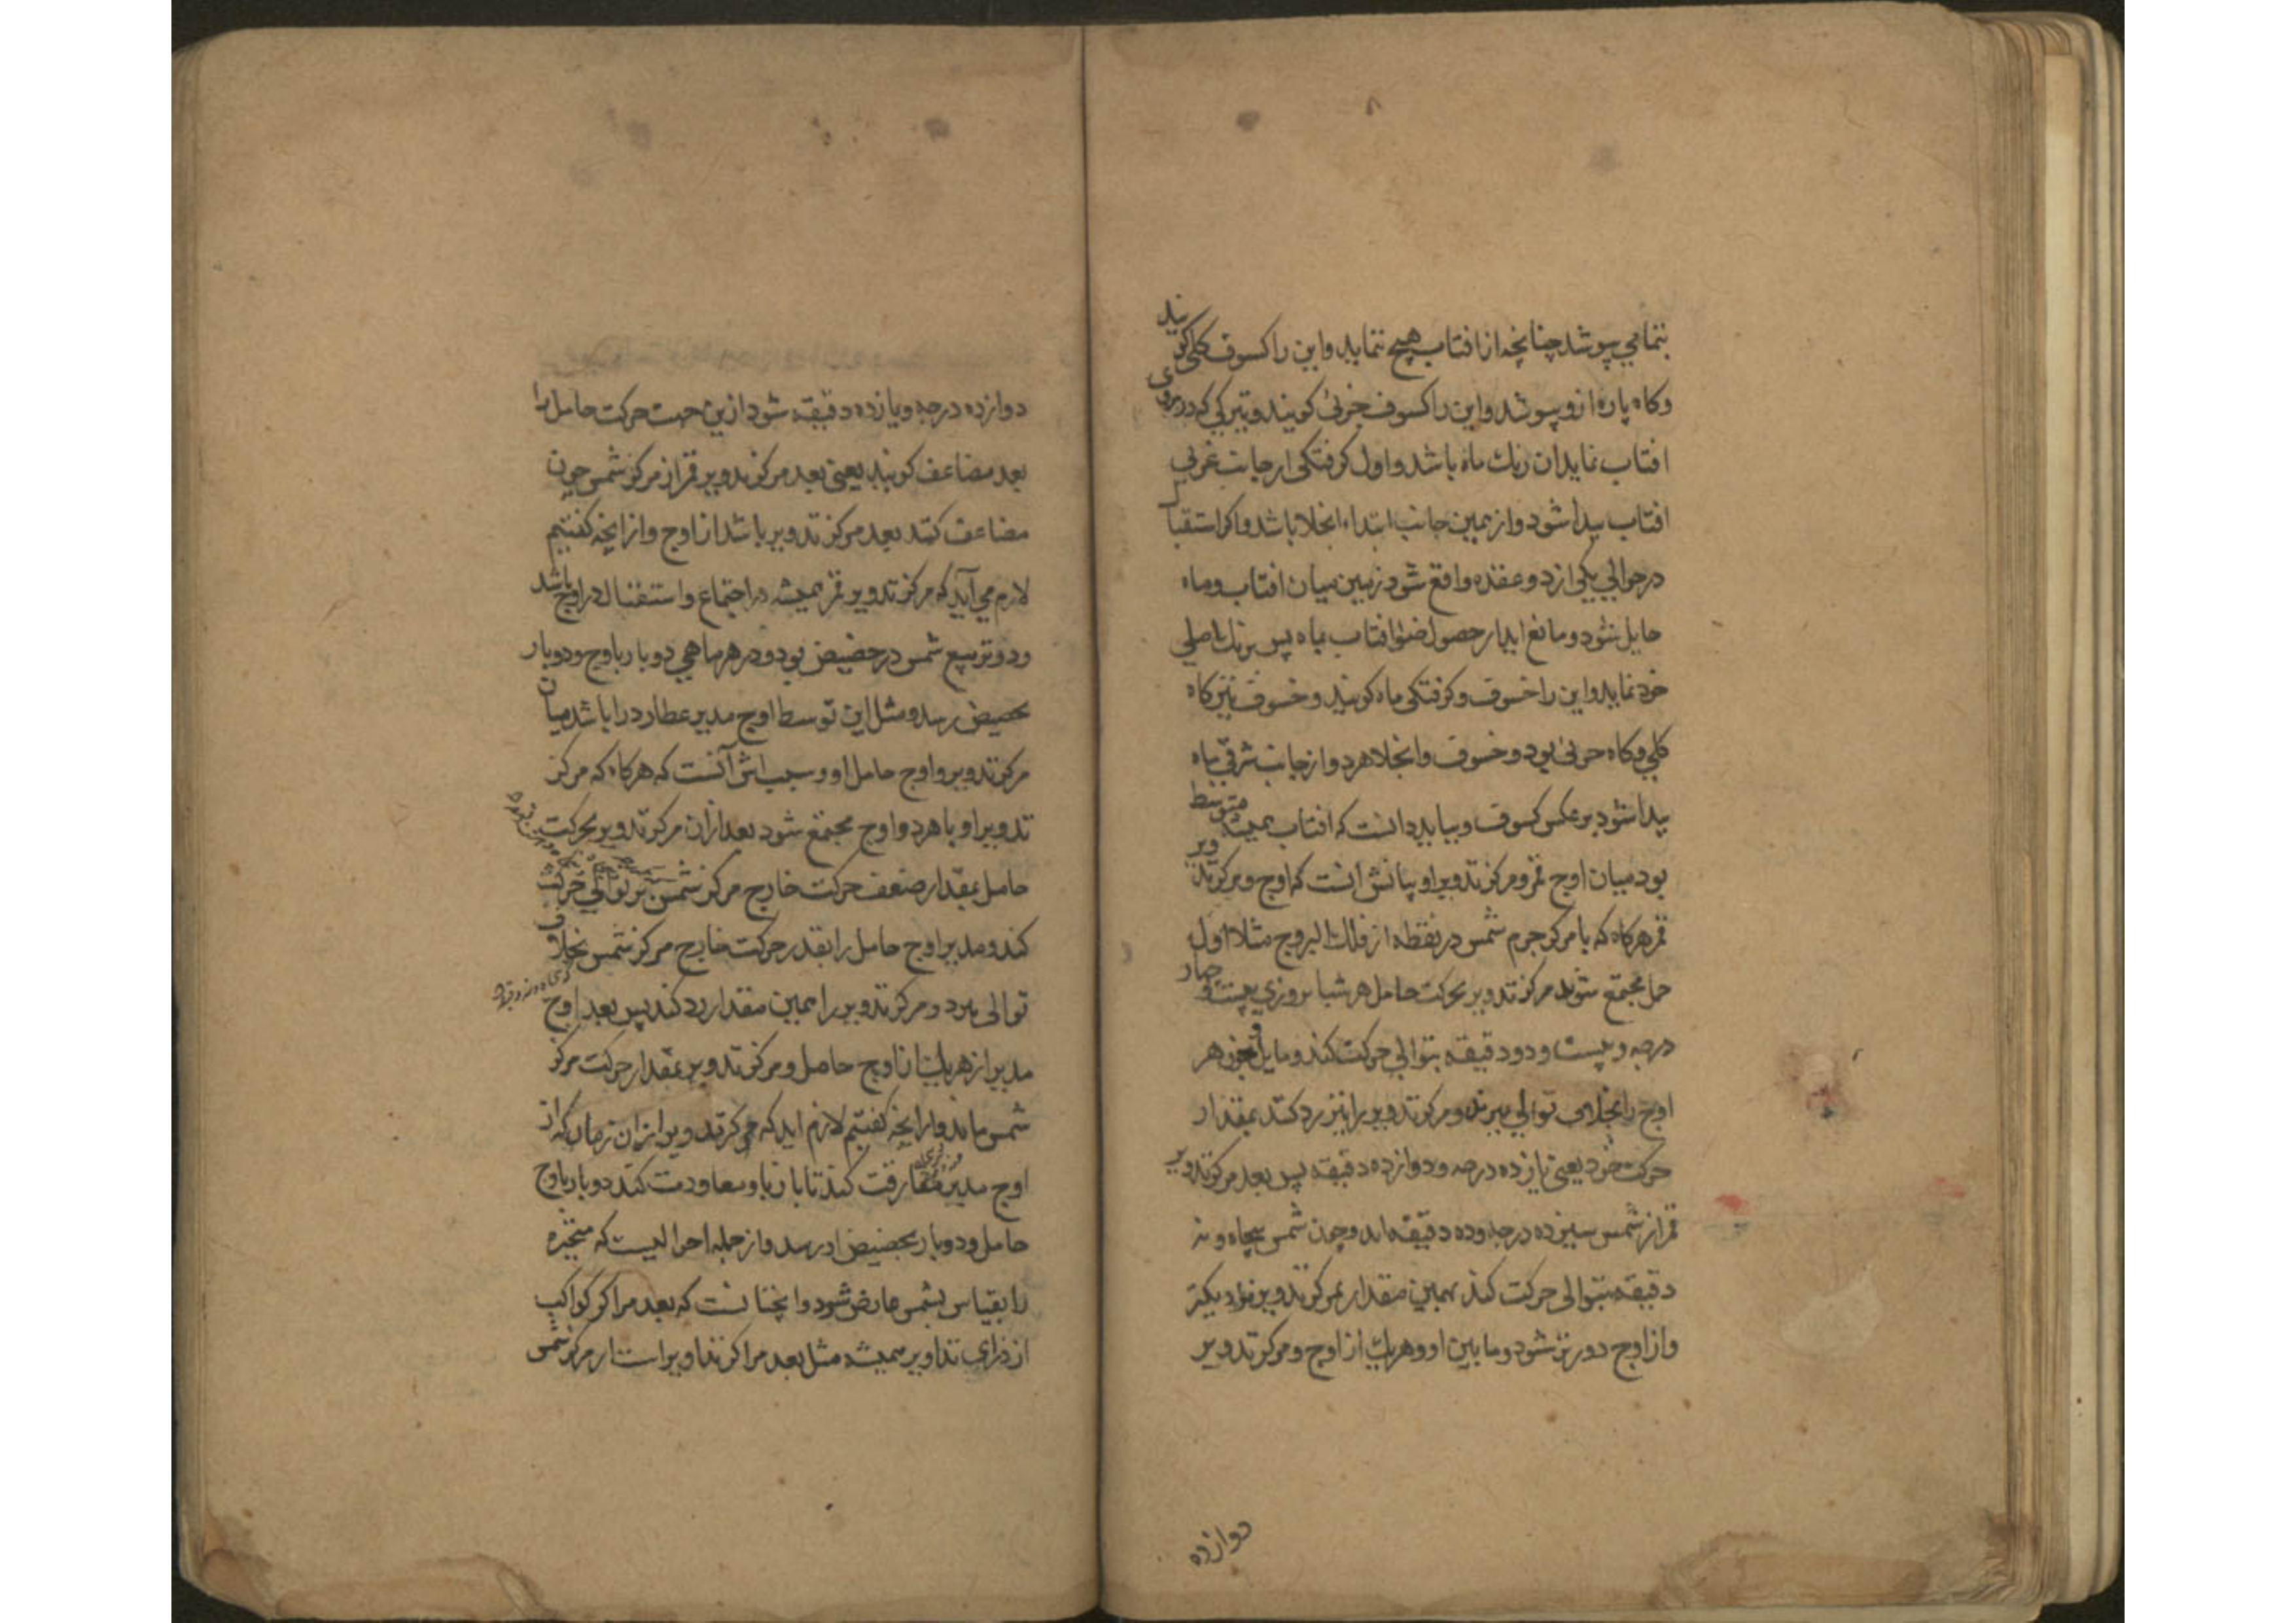 ۸
بتمامي پوشد چنانچه از افتاب هيچ ننمايد واين را كسوف كلي كويند
وكاه پاره ازو پوشد واين را كسوف جزئي كويند وتيركي كه در روي
افتاب نمايد ان رنك ماه باشد واول كرفتكي از جانب غربي
افتاب پيدا شود واز همين جانب ابتداء انجلا باشد واكر استقبال
در حوالي يكي از دو عقده واقع شود زمين ميان افتاب وماه
حايل شود ومانع ايد از حصول ضوء افتاب بماه پس برنك اصلي
خود نمايد واين را خسوف وكرفتكي ماه كويند وخسوف نيز كاه
كلي وكاه جزئي بود وخسوف وانجلا هر دو از جانب شرقي ماه
پيدا شود بر عكس كسوف وببايد دانست كه افتاب هميشه متوسط
بود ميان اوج قمر ومركز تدوير او بيانش انست كه اوج ومركز تدوير
قمر هركاه كه با مركز جرم شمس در نقطه از فلك البروج مثلا اول
حمل مجتمع شوند مركز تدوير بحركت حامل هر شبا نروزي بيست وچهار
درجه وبيست ودو دقيقه بتوالي حركت كند ومايل وجوزهر
اوج را بخلاف توالي ببرند ومركز تدوير را نيز رد كنند بمقدار
حركت خود يعني يازده درجه ودوازده دقيقه پس بعد مركز تدوير
قمر از شمس سيزده درجه وده دقيقه ماند وچون شمس پنجاه ونه
دقيقه بتوالي حركت كند بهمين مقدار بمركز تدوير نزديكتر
واز اوج دورتر شود وما بين او وهر يك از اوج ومركز تدوير
دوازده
دوازده درجه ويازده دقيقه شود ازين جهت حركت حامل را
بعد مضاعف كويند يعني بعد مركز تدوير قمر از مركز شمس چون
مضاعف كنند بعد مركز تدوير باشد از اوج واز انچه كفتيم
لازم مي آيد كه مركز تدوير قمر هميشه در اجتماع واستقبال در اوج باشد
ودو تربيع شمس در حضيض بود ودر هر ماهي دو بار باوج ودو بار
بحضيض رسد ومثل اين توسط اوج مدير عطارد را باشد ميان
مركز تدوير واوج حامل او وسبب اش آنست كه هركاه كه مركز
تدوير او با هر دو اوج مجتمع شود بعد ازان مركز تدوير بحركت
حامل بمقدار ضعف حركت خارج مركز شمس بر توالي حركت
كند ومدير اوج حامل را بقدر حركت خارج مركز شمس بخلاف
توالى ببرد ومركز تدوير را همين مقدار رد كند پس بعد اوج
مدير از هر يك از اوج حامل ومركز تدوير بمقدار حركت مركز
شمس ماند واز انچه كفتيم لازم ايد كه مركز تدوير از ان زمان كه از
اوج مدير مفارقت كند تا باز باو معاودت كند دو بار باوج
حامل ودو بار بحضيض او رسد واز جمله احواليست كه متحيره
را بقياس بشمس عارض شود وانچنانست كه بعد مراكز كواكب
از ذراي تداوير هميشه مثل بعد مراكز تداوير است از مركز شمس